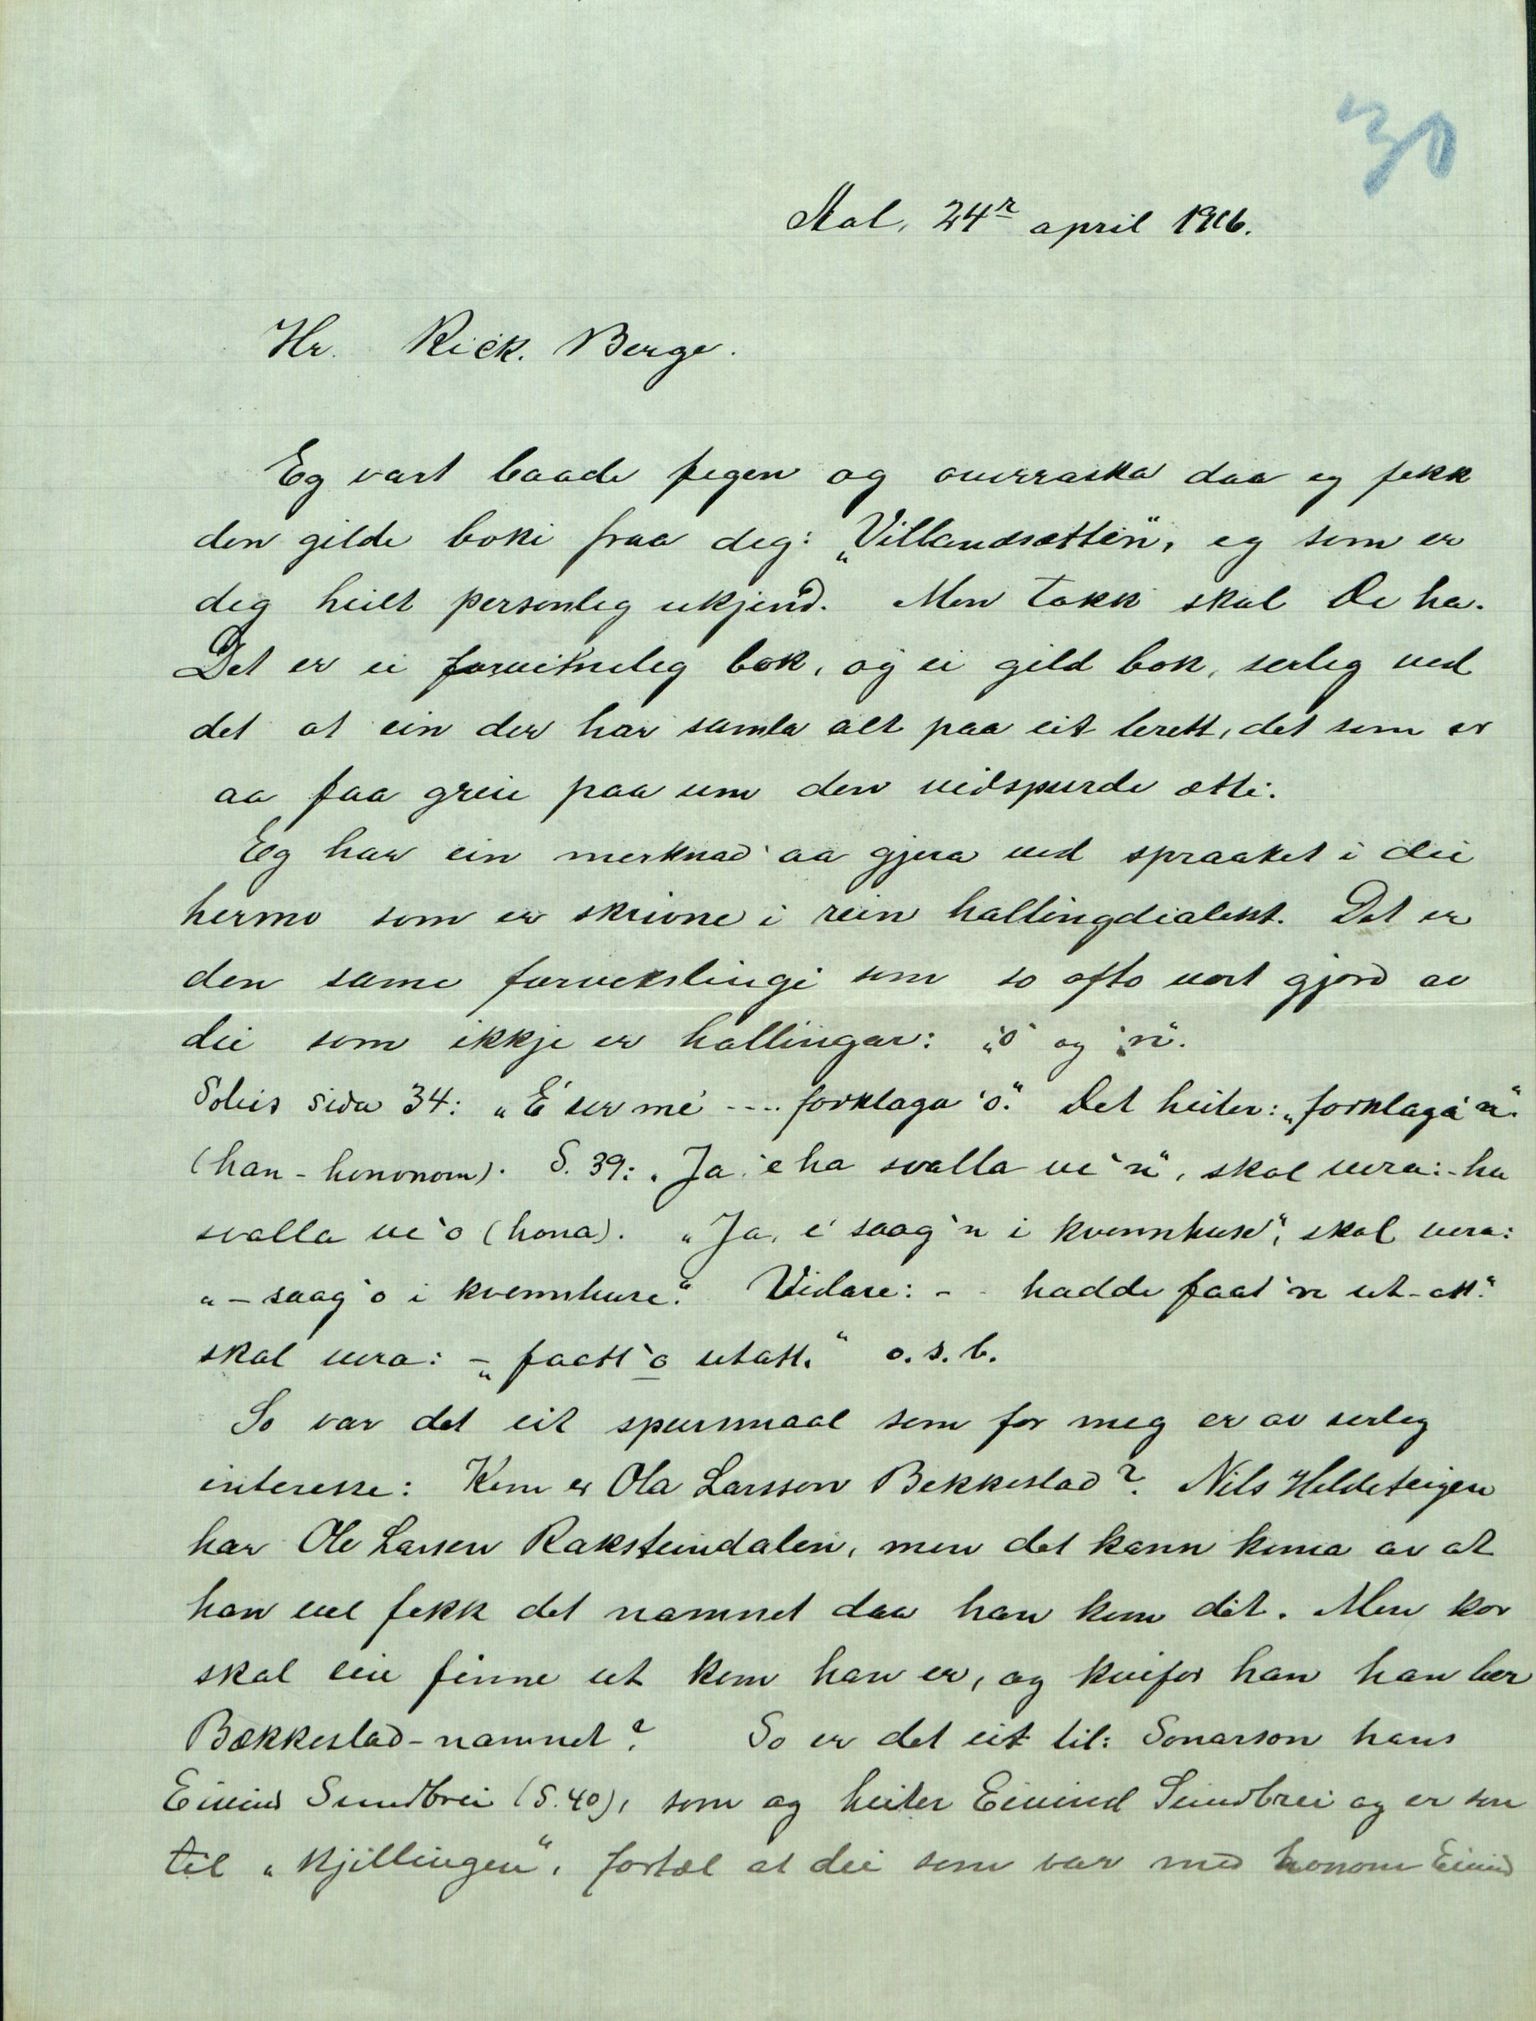 30
Aal, 24de april 1916.
Hr. Rick. Berge.
Eg vart baade fegen og overraska daa eg fekk
den gilde boki fraa deg: „Villandsætten", eg som er
deg heilt personleg ukjend. Men takk skal De ha.
Det er ei forvitneleg bok, og ei gild bok, serleg ved
det at ein der har samla alt paa eit brett, det som er
aa faa greie paa um den vidspurde ætti.
Eg har ein merknad aa gjera ved spraaket i dei
hermo som er skrivne i rein hallingdialekt. Det er
den same forvekslingi som so ofto vert gjord av
dei som ikkje er hallingar: „'o" og „'n".
Soleis sida 34: „E ser me .... forklaga 'o." Det heiter: „forklaga 'n".
(han - hononom). S. 39: „Ja e ha svalla ve 'n", skal vera: - ha
svalla ve 'o (hona). „Ja, e saag 'n i kvennhuse", skal vera:
„- saag 'o i kvennhuse." Vidare: - - hadde faat 'n ut-att."
skal vera: - „faatt 'o utatt." o. s. b.
So var det eit spursmaal som for meg er av serleg
interesse: Kem er Ola Larsson Bekkestad? Nils Heldeteigen
har Ole Larsen Raksteindalen, men det kann koma av at
han vel fekk det namnet daa han kom dit. Men kor
skal ein finne ut kem han er, og kvifor han han ber
Bækkestad-namnet? So er det eit til: Sonarson hans
Eivind Sundbrei (S. 40), som og heiter Eivind Sundbrei og er son
til „Kjillingen", fortæl at dei som var med honom Eivind